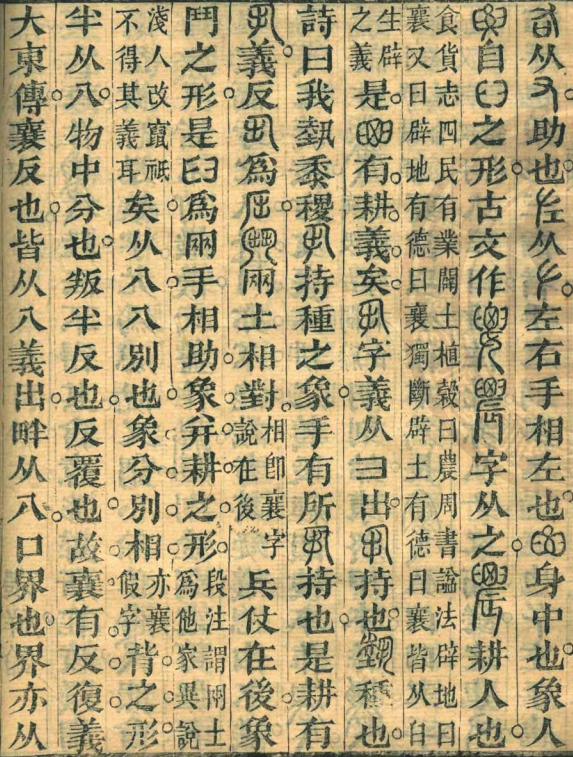 从又助也从左右手相左也身中也象人
自𦥑之形古文作字从之耕人也
食貨志四民有業闢土植穀曰農周書諡法辟地曰
襄又曰辟地有德曰襄獨斷辟土有德曰襄皆从𦥑
生辟
之義
是有耕義矣丮字義从彐出丮持也種也
詩曰我埶黍稷丮持種之象手有所丮持也是耕有
丮義反丮為兩土相對
相即襄字
說在後
兵仗在後象
鬥之形是𦥑為兩手相助象幷耕之形
段注謂兩士
為他家異說
淺人改竄祇
不得其義耳
矣从八八別也象分別相
亦襄
假字
背之形
半从八物中分也叛半反也反覆也故襄有反復義
大東傳襄反也皆从八義出畔从八口界也界亦从